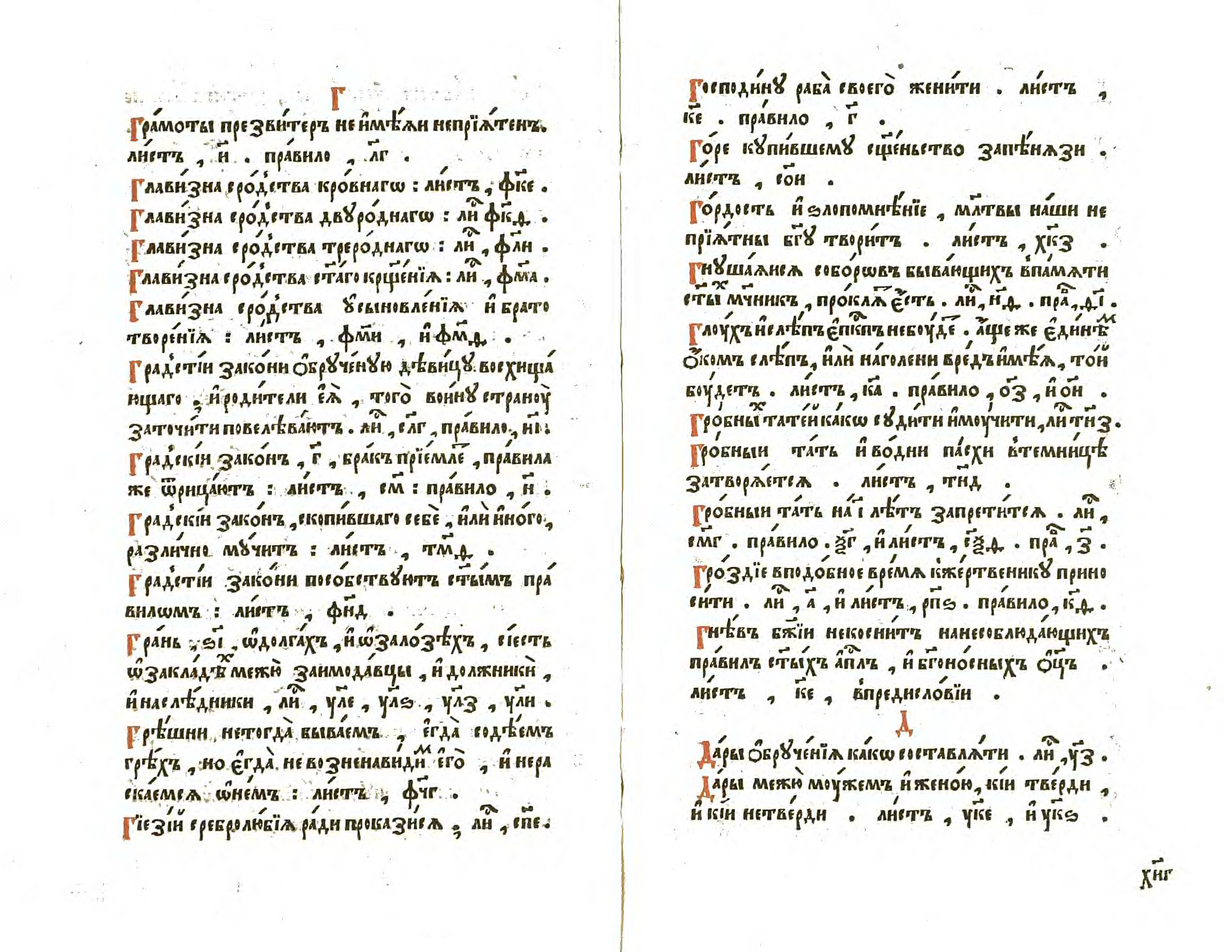 Г
Гра́моты презви́теръ не и҆мѣ́ѧи непрїѧ́тенъ.
ли́стъ , и҃ . пра́вило , лг .
Глави́зна сро́дства кро́внагѡ : ли́стъ , фк҃е .
Глави́зна сро́дства двꙋро́днагѡ : ли , фк҃д .
Глави́зна сро́дства треро́днагѡ : ли , фл҃и .
Глави́зна сро́дства ст҃аго крщ҃е́нїѧ : ли , фм҃а .
Глави́зна сро́дства ᲂу҆сыновле́нїѧ и҆ брато
творе́нїѧ : ли́стъ , фм҃и , и҆ фм҃д .
Гра́дстїи зако́ни ѻ҆брꙋче́нꙋю дѣви́цꙋ восхища́
ющаго , и҆ роди́тели е҆ѧ̀ , того̀ во́инꙋ странᲂу
заточи́ти повелѣва́ютъ . ли , сл҃г , пра́вило , н҃и .
Гра́дскїи зако́нъ , г҃ , бра́къ прїе́мле , пра́вила
же ѿрица́ютъ : ли́стъ , см҃ : пра́вило , и҃ .
Гра́дскїи зако́нъ , скопи́вшаго себѐ , и҆лѝ и҆но́го ,
разли́чно мꙋ́читъ : ли́стъ , тм҃д .
Гра́дстїи зако́ни посо́бствꙋютъ ст҃ы́мъ пра́
вилѡмъ : ли́стъ , фн҃д .
Гра́нь , ѕ҃і , ѡ҆долга́хъ , и҆ ѡ҆зало́зѣхъ , си́есть
ѡ҆закла́дѣⷯ межю̀ заимода́вцы , и҆ должникѝ ,
и҆ наслѣ́дники , ли , ул҃е , ул҃ѕ , ул҃з , ул҃и .
Грѣ́шни нетогда̀ быва́емъ , є҆гда̀ содѣ́емъ
грѣ́хъ , но є҆гда̀ не возненави́диⷨ е҆го̀ , и҆ нера
ска́емсѧ ѡ҆не́мъ : ли́стъ , фч҃г .
Гїезі́й сребролю́бїѧ ра́ди прокази́сѧ , ли , сп҃е .
Господи́нꙋ раба̀ своего̀ жени́ти . ли́стъ ,
к҃е . пра́вило , г҃ .
Го́ре кꙋпи́вшемꙋ сщ҃е́ньство запѣ́нѧзи .
ли́стъ , со҃и .
Го́рдость и҆ ѕлопомнѣ́нїе , мл҃твы на́ши не
прїѧ́тны бг҃ꙋ твори́тъ . ли́стъ , хк҃з .
Гнꙋша́ѧисѧ собо́рѡвъ быва́ющихъ в̾па́мѧти
ст҃ыⷯ мч҃никъ , про́клѧ е҆́сть . ли , н҃д . пра , д҃і .
Глᲂу́хъ и҆ слѣ́пъ є҆пⷭкпъ небᲂу́де . а҆́ще же є҆ди́нѣⷨ
ѻ҆́комъ слѣ́пъ , и҆лѝ на́голени вре́дъ и҆мѣ́ѧ , то́й
бᲂу́детъ . ли́стъ , к҃а . пра́вило , о҃з , и҆ о҃и .
Гро́бныⷯ тате́й ка́кѡ сꙋди́ти и҆ мᲂу́чити , ли тн҃з .
Гро́бныи та́ть и҆ во́дни па́схи в̾темни́цѣ
затворѧ́етсѧ . ли́стъ , тн҃д .
Гро́бныи та́ть на і҃ лѣ́тъ запрети́тсѧ . ли ,
см҃г . пра́вило . ѯ҃г , и҆ ли́стъ , сѯ҃д . пра , з҃ .
Гро́здїе в̾подо́бное вре́мѧ к̾же́ртвеникꙋ прино
си́ти . ли , а҃ , и҆ ли́стъ , рп҃ѕ . пра́вило , к҃д .
Гнѣ́въ бж҃їи некосни́тъ нанесоблюда́ющихъ
пра́вилъ ст҃ы́хъ а҆пⷭ҇лъ , и҆ бг҃оно́сныхъ ѻ҆ц҃ъ .
ли́стъ , к҃е , в̾предисло́вїи .
Д
Да́ры ѻ҆брꙋче́нїѧ ка́кѡ составлѧ́ти . ли , у҃з .
Да́ры межю̀ мᲂу́жемъ и҆ жено́ю , кі́и тве́рди ,
и҆ кі́и нетве́рди . ли́стъ , ук҃е , и҆ ук҃ѕ .
хн҃г